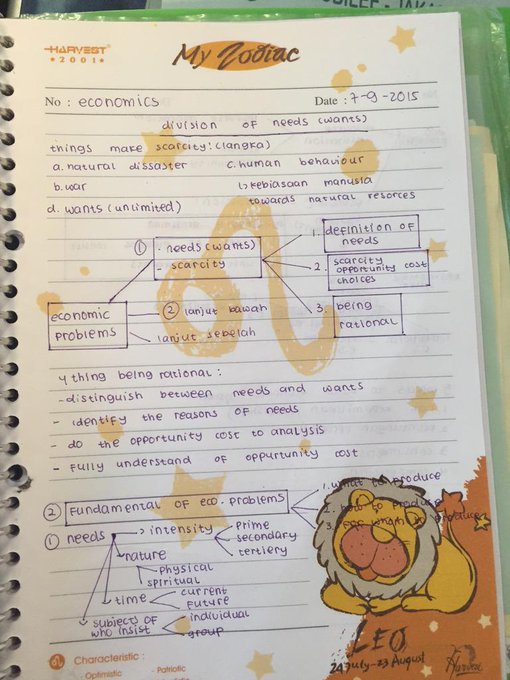 HARVEST
2001
My Zodiac
No : economics
Date : 7-9-2015
division of needs (wants)
things make scarcity: (langka)
a. natural dissaster
c. human behaviour
b. war
↳ kebiasaan manusia
towards natural resorces
d. wants (unlimited)
① - needs (wants)
- scarcity
1. definition of
needs
2. scarcity
opportunity cost
choices
3. being
rational
economic
problems
② lanjut bawah
lanjut sebelah
4 thing being rational :
- distinguish between needs and wants
- identify the reasons of needs
- do the opportunity cost to analysis
- fully understand of oppurtunity cost
② Fundamental of eco. problems
1. what to produce
2. how to produce
3. for whom to produce
① needs
intensity
prime
secondary
tertiery
nature
physical
spiritual
time
current
future
subjects of
who insist
individual
group
LEO
24 July - 23 August
Harvest
Characteristic :
- Optimistic
- Patriotic